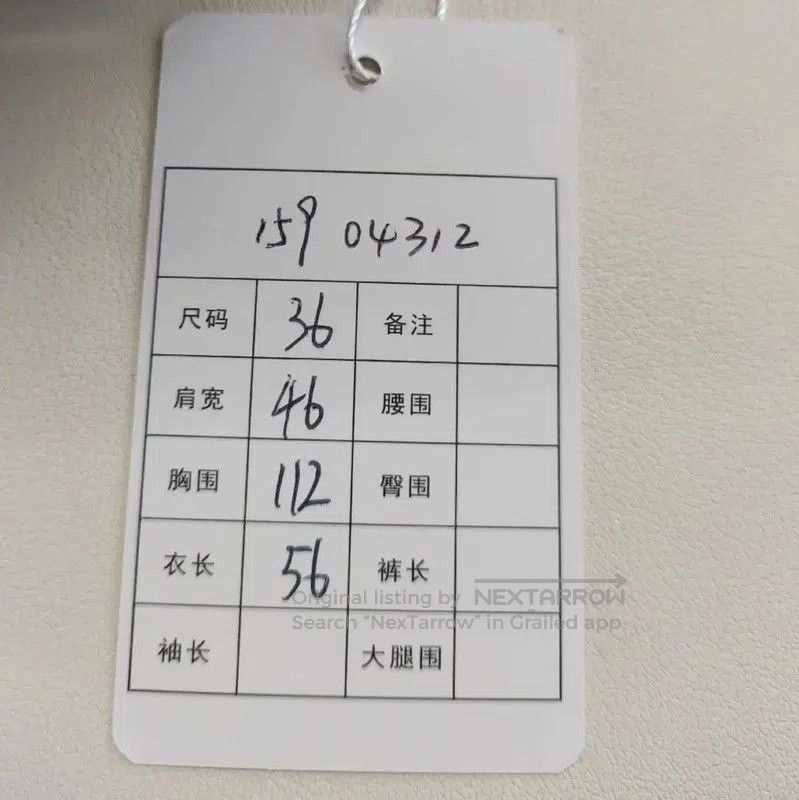 159 04312
尺码 36 备注
肩宽 46 腰围
胸围 112 臀围
衣长 56 裤长
Original listing by NEXTARROW
Search "NexTarrow" in Grailed app
袖长 大腿围